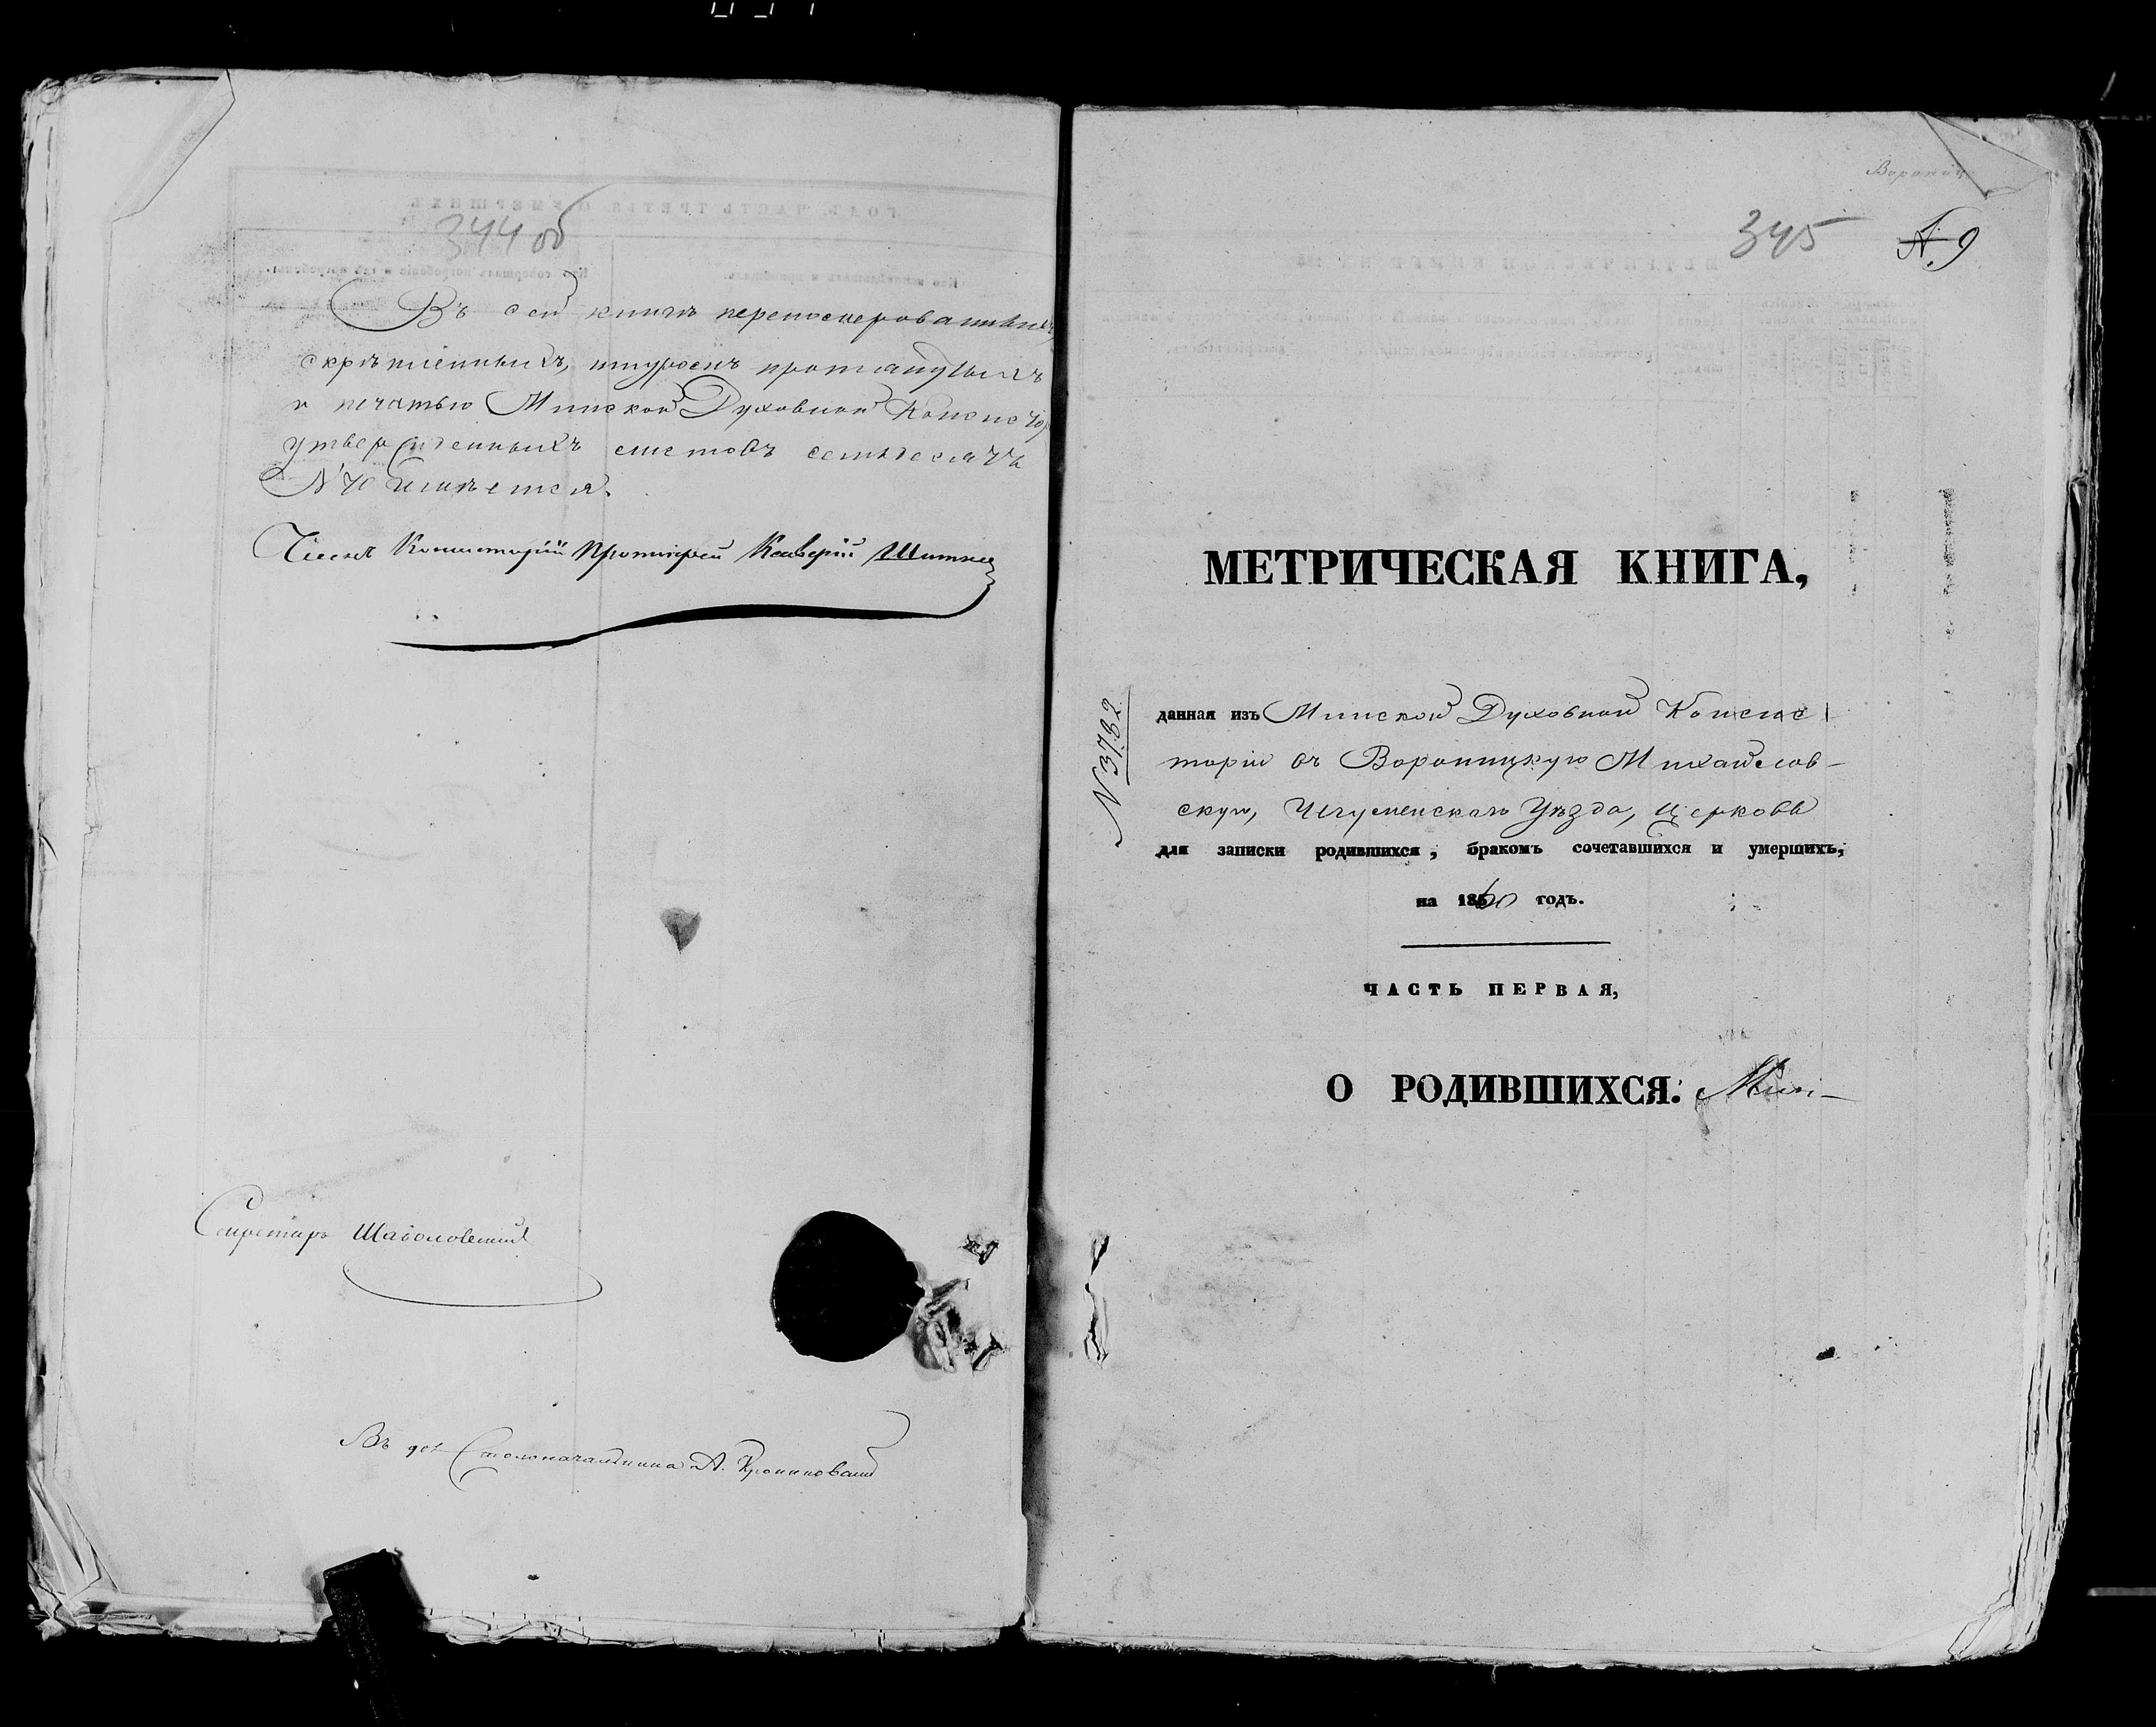 344 об
Въ сей книгѣ перенумерованныхъ,
скрѣпленныхъ, шнуромъ протянутыхъ
и печатью Минской Духовной Консистор
утвержденныхъ листовъ семьдесятъ
№ 70 имѣется.
Членъ Консисторіи Протоіерей
Секретарь
Въ дол Столоначальника А.
345
№ 9
МЕТРИЧЕСКАЯ КНИГА,
№ 3762
данная изъ Минской Духовной Консис-
торіи въ Вороницкую Михайлов-
скую, Игуменскаго Уѣзда, Церковь
для записки родившихся, бракомъ сочетавшихся и умершихъ,
на 1860 годъ.
ЧАСТЬ ПЕРВАЯ,
О РОДИВШИХСЯ.